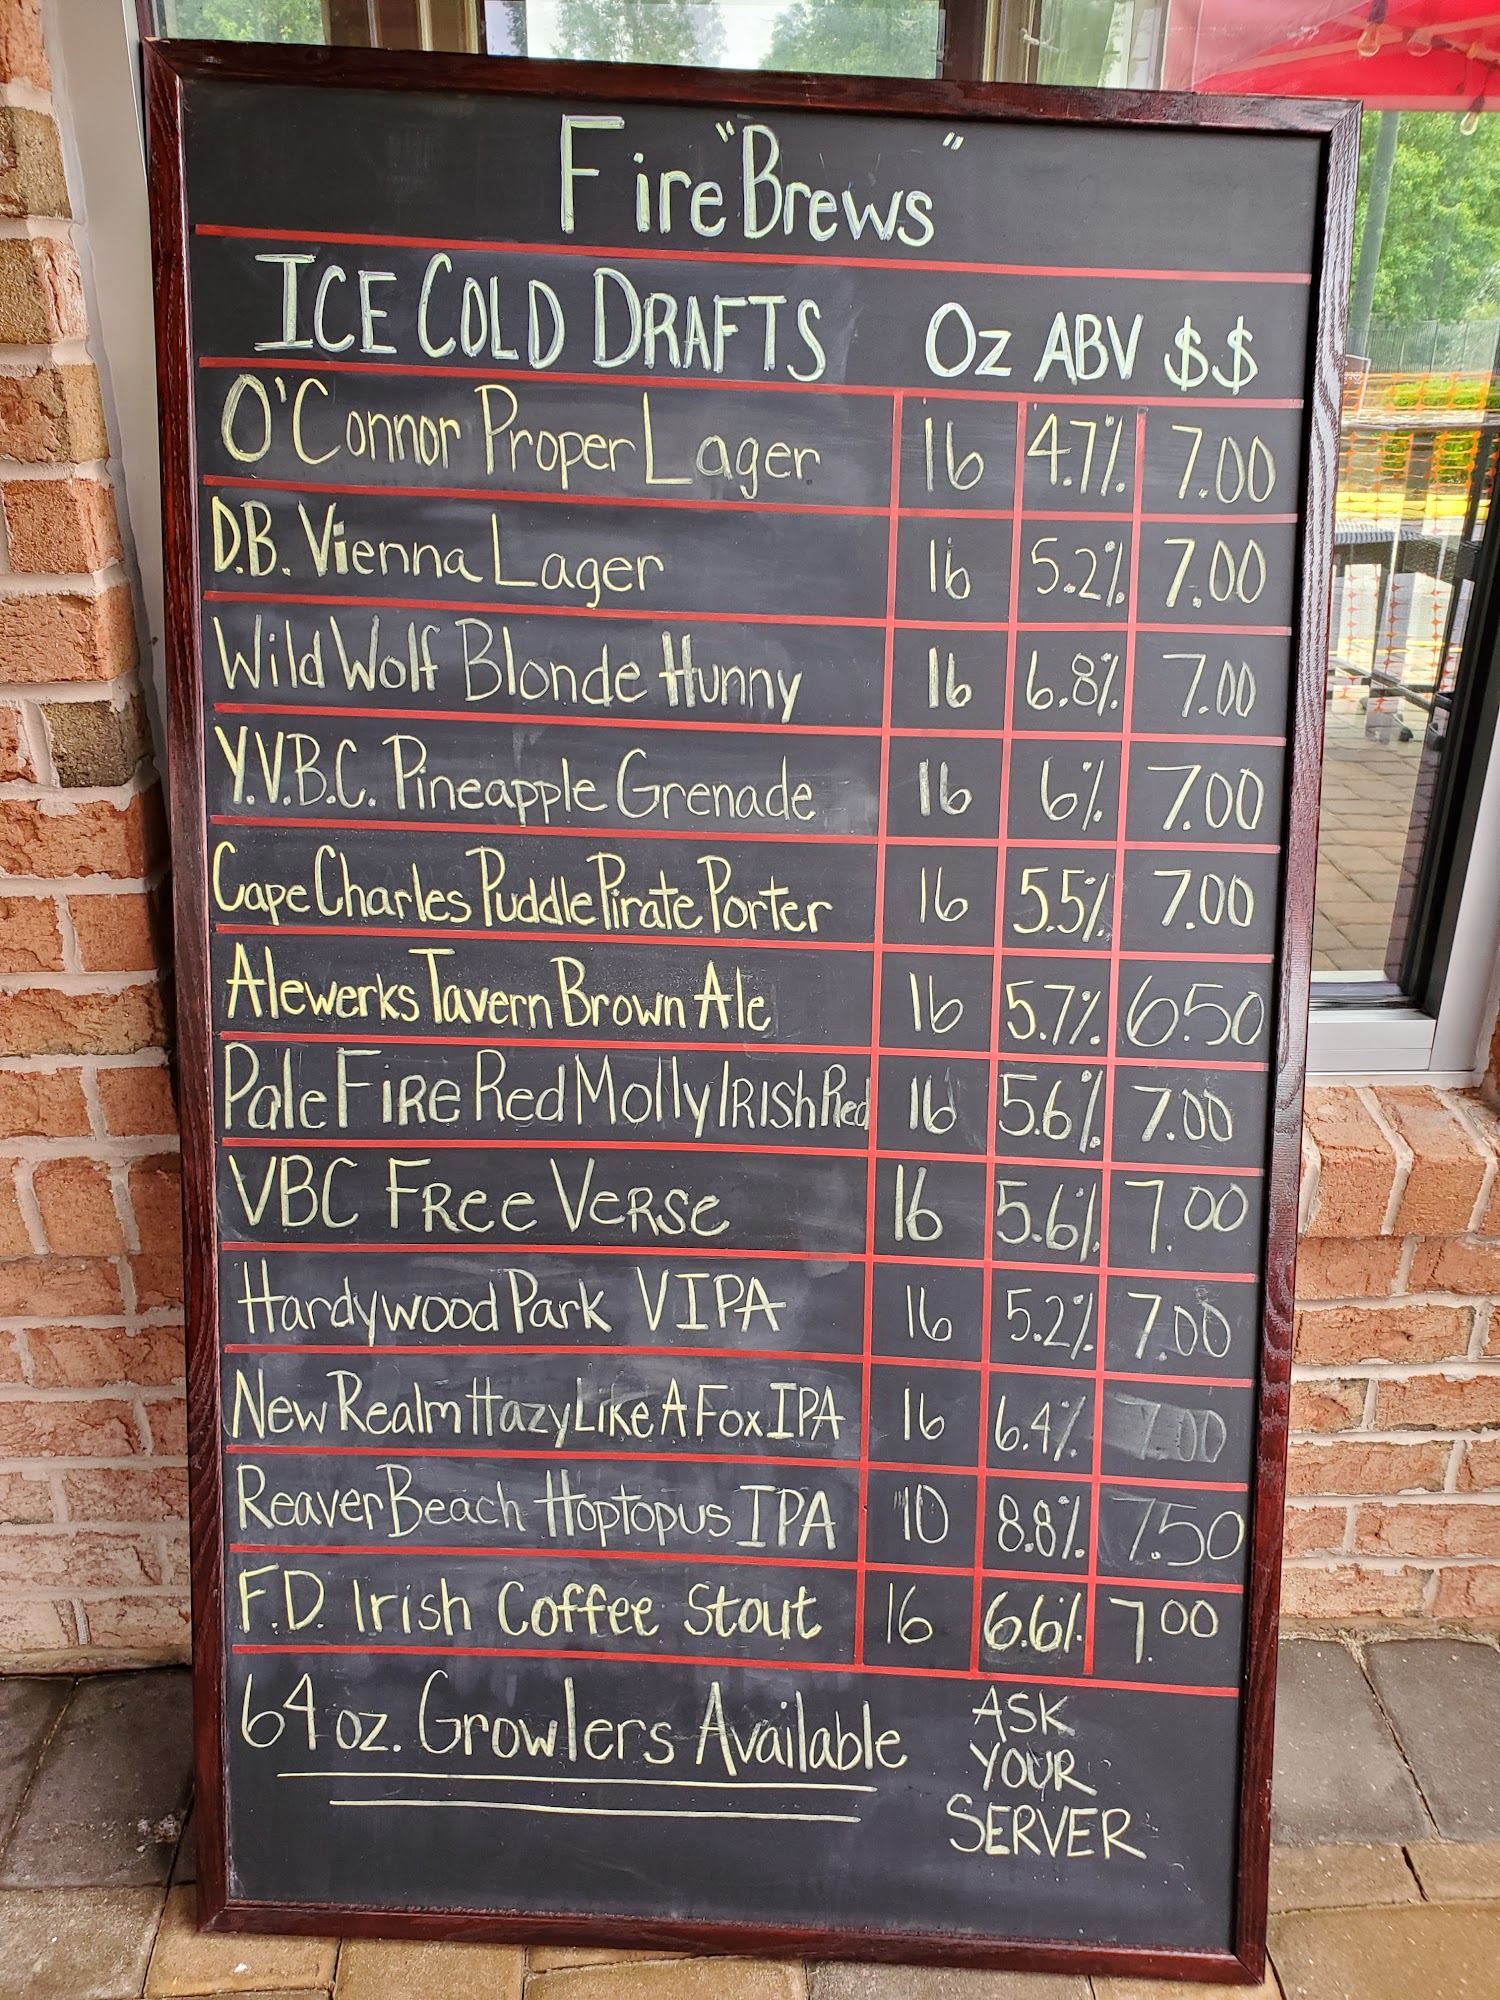 Fire "Brews"
ICE COLD DRAFTS Oz ABV $$
O'Connor Proper Lager 16 4.7% 7.00
D.B. Vienna Lager 16 5.2% 7.00
Wild Wolf Blonde Hunny 16 6.8% 7.00
Y.V.B.C. Pineapple Grenade 16 6% 7.00
Cape Charles Puddle Pirate Porter 16 5.5% 7.00
Alewerks Tavern Brown Ale 16 5.7% 6.50
Pale FIRE Red Molly IRISh Red 16 5.6% 7.00
VBC FRee VeRSe 16 5.6% 7.00
Hardywood Park VIPA 16 5.2% 7.00
New Realm Hazy Like A Fox IPA 16 6.4% 7.00
Reaver Beach Hoptopus IPA 10 8.8% 7.50
F.D. Irish Coffee Stout 16 6.6% 7.00
64 oz. Growlers Available
ASK
YOUR
SERVER